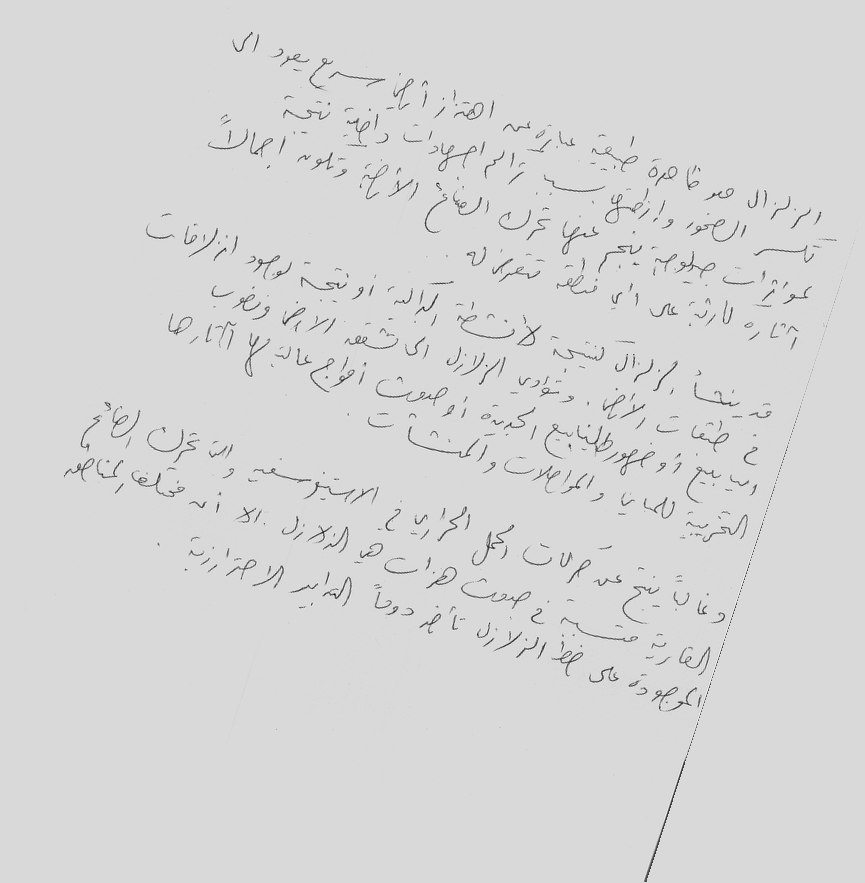 الزلزال هو ظاهرة طبيعية عبارة عن اهتزاز أرضي سريع يعود الى
تكسر الصخور وإزاحتها بسبب تراكم اجهادات داخلية نتيجة
لمؤثرات جيولوجية ينجم عنها تحرك الصفائح الأرضية وتكون اجمالاً
آثاره كارثية على أي منطقة تتعرض له.
قد ينشأ الزلزال كنتيجة لأنشطة البراكين أو نتيجة لوجود انزلاقات
في طبقات الأرض. وتؤدي الزلازل الى تشقق الارض ونضوب
الينابيع أو ظهور الينابيع الجديدة أو حدوث أمواج عالية مع آثارها
التخريبية للمباني والمواصلات والمنشآت.
وغالباً ينتج عن حركات الحمل الحراري في الاستينوسفير والتي تحرك الصفائح
القارية متسببة في حدوث هزات هي الزلازل. الا أن مختلف المناطق
الموجودة على خط الزلازل تأخذ دوماً التدابير الاحترازية.